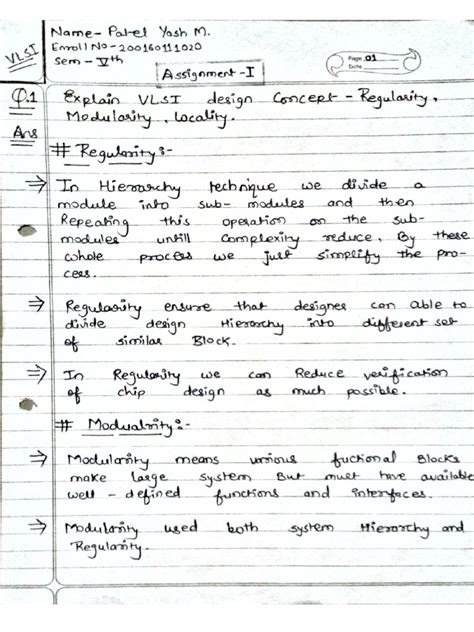 Name- Patel Yash M.
Enroll No - 200160111020
Sem - Vth
VLSI
Page 01
Date
Assignment - I
Q.1 Explain VLSI design Concept - Regularity,
Modularity, Locality.
Ans
# Regularity :-
⇒ In Hierarchy technique we divide a
module into sub- modules and then
Repeating this operation on the sub-
modules untill Complexity reduce. By these
whole process we just simplify the pro-
cess.
⇒ Regularity ensure that designer can able to
divide design Hierarchy into different set
of similar Block.
⇒ In Regularity we can Reduce verification
of chip design as much possible.
# Modualrity :-
⇒ Modularity means various fuctional Blocks
make large system But must have available
well - defined functions and interfaces.
⇒ Modularity used both system Hierarchy and
Regularity.